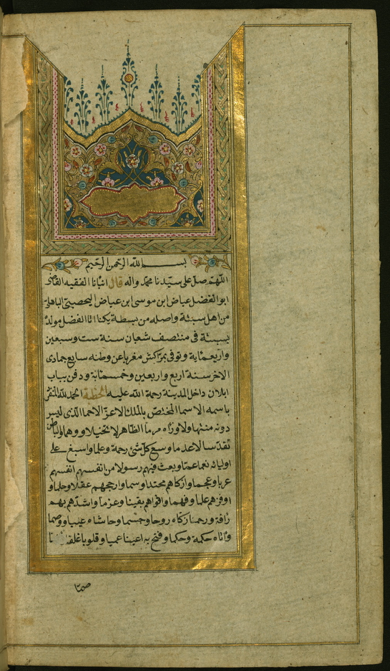 بسم الله الرحمن الرحيم
اللهم صل على سيدنا محمد واله قال انبانا الفقيه القاضى
ابو الفضل عياض ابن موسى ابن عياض اليحصبي
من اهل سبتة واصله من بسطة يكنا ابا الفضل مولده
بسبتة فى منتصف شعبان سنة ست وسبعين
واربعماية وتوفى بمراكش مغربا عن وطنه سابع جمادى
الاخر سنة اربع واربعين وخمسماية ودفن بباب
ايلان داخل المدينة رحمة الله عليه الحمد لله المتفرد
باسمه الاسما المختص بالملك الاعز الاحما الذى ليس
دونه منتها ولا وراه مرما الظاهر لا تخيلا ووهما الباطن
تقدسا لا عدما وسع كل شى رحمة وعلما واسبغ على
اوليائه نعما عما وبعث فيهم رسولا من انفسهم انفسهم
عربا وعجما وازكاهم محتدا ومنما وارجحهم عقلا وحلما و
اوفرهم علما وفهما واقواهم يقينا وعزما واشدهم بهم
رافة ورحما زكاه روحا وجسما وحاشاه عيبا ووصما
واتاه حكمة وحكما وفتح به اعينا عميا وقلوبا غلفا